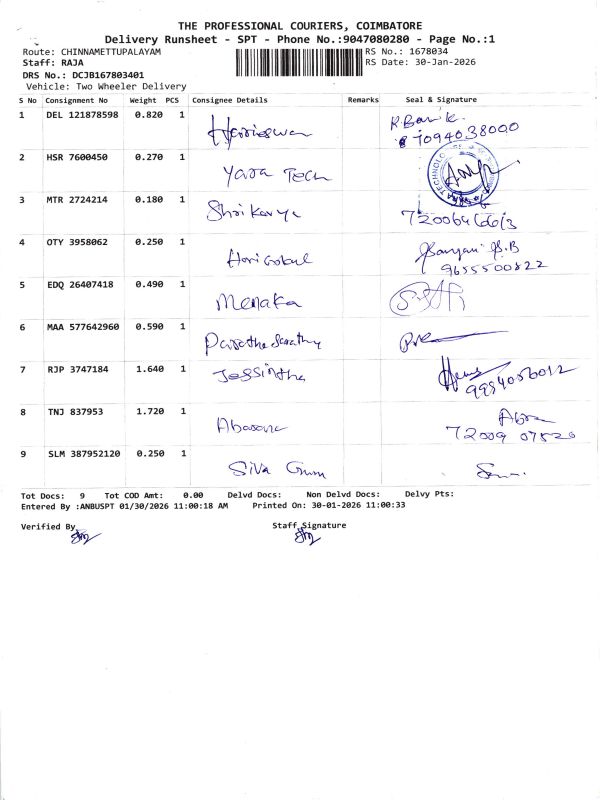 THE PROFESSIONAL COURIERS, COIMBATORE
Delivery Runsheet - SPT - Phone No.:9047080280 - Page No.:1
Route: CHINNAMETTUPALAYAM RS No.: 1678034
Staff: RAJA RS Date: 30-Jan-2026
DRS No.: DCJB167803401
Vehicle: Two Wheeler Delivery
S No Consignment No Weight PCS Consignee Details Remarks Seal & Signature
1 DEL 121878598 0.820 1 Harrieswar
2 HSR 7600450 0.270 1 Yasa Tech
3 MTR 2724214 0.180 1 Shri Kavya
4 OTY 3958062 0.250 1 Hari Gokul 9655500822
5 EDQ 26407418 0.490 1 Menaka
6 MAA 577642960 0.590 1 Parthasarathy
7 RJP 3747184 1.640 1 Jessintha
8 TNJ 837953 1.720 1
9 SLM 387952120 0.250 1 Siva Guru
Tot Docs: 9 Tot COD Amt: 0.00 Delvd Docs: Non Delvd Docs: Delvy Pts:
Entered By :ANBUSPT 01/30/2026 11:00:18 AM Printed On: 30-01-2026 11:00:33
Verified By Staff Signature